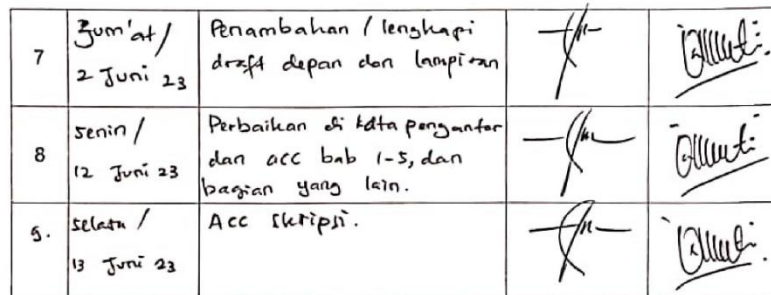 7
Jum'at /
2 Juni 23
Penambahan / lengkapi
draft depan dan lampiran
8
senin /
12 Juni 23
Perbaikan di kata pengantar
dan acc bab 1-5, dan
bagian yang lain.
9.
selasa /
13 Juni 23
Acc skripsi.